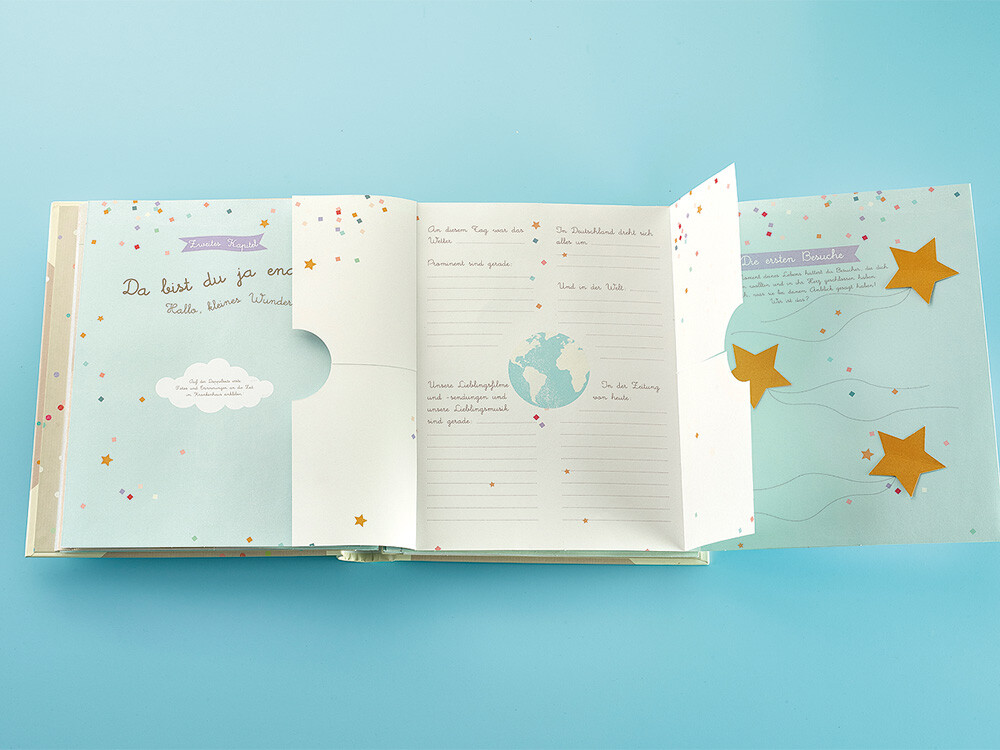 Zweites Kapitel
Da bist du ja end
Hallo, kleines Wunder
Auf der Doppelseite
Fotos und Erinnerungen an die Zeit
im Krankenhaus einkleben.
An diesem Tag war das
Wetter
Prominent sind gerade:
Unsere Lieblingsfilme
und -sendungen und
unsere Lieblingsmusik
sind gerade:
In Deutschland dreht sich
alles um
Und in der Welt:
In der Zeitung
von heute:
Die ersten Besuche
Moment deines Lebens hattest du Besucher, die dich
wollten und in ihr Herz geschlossen haben.
dich, was sie bei deinem Anblick gesagt haben?
Wer ist das?